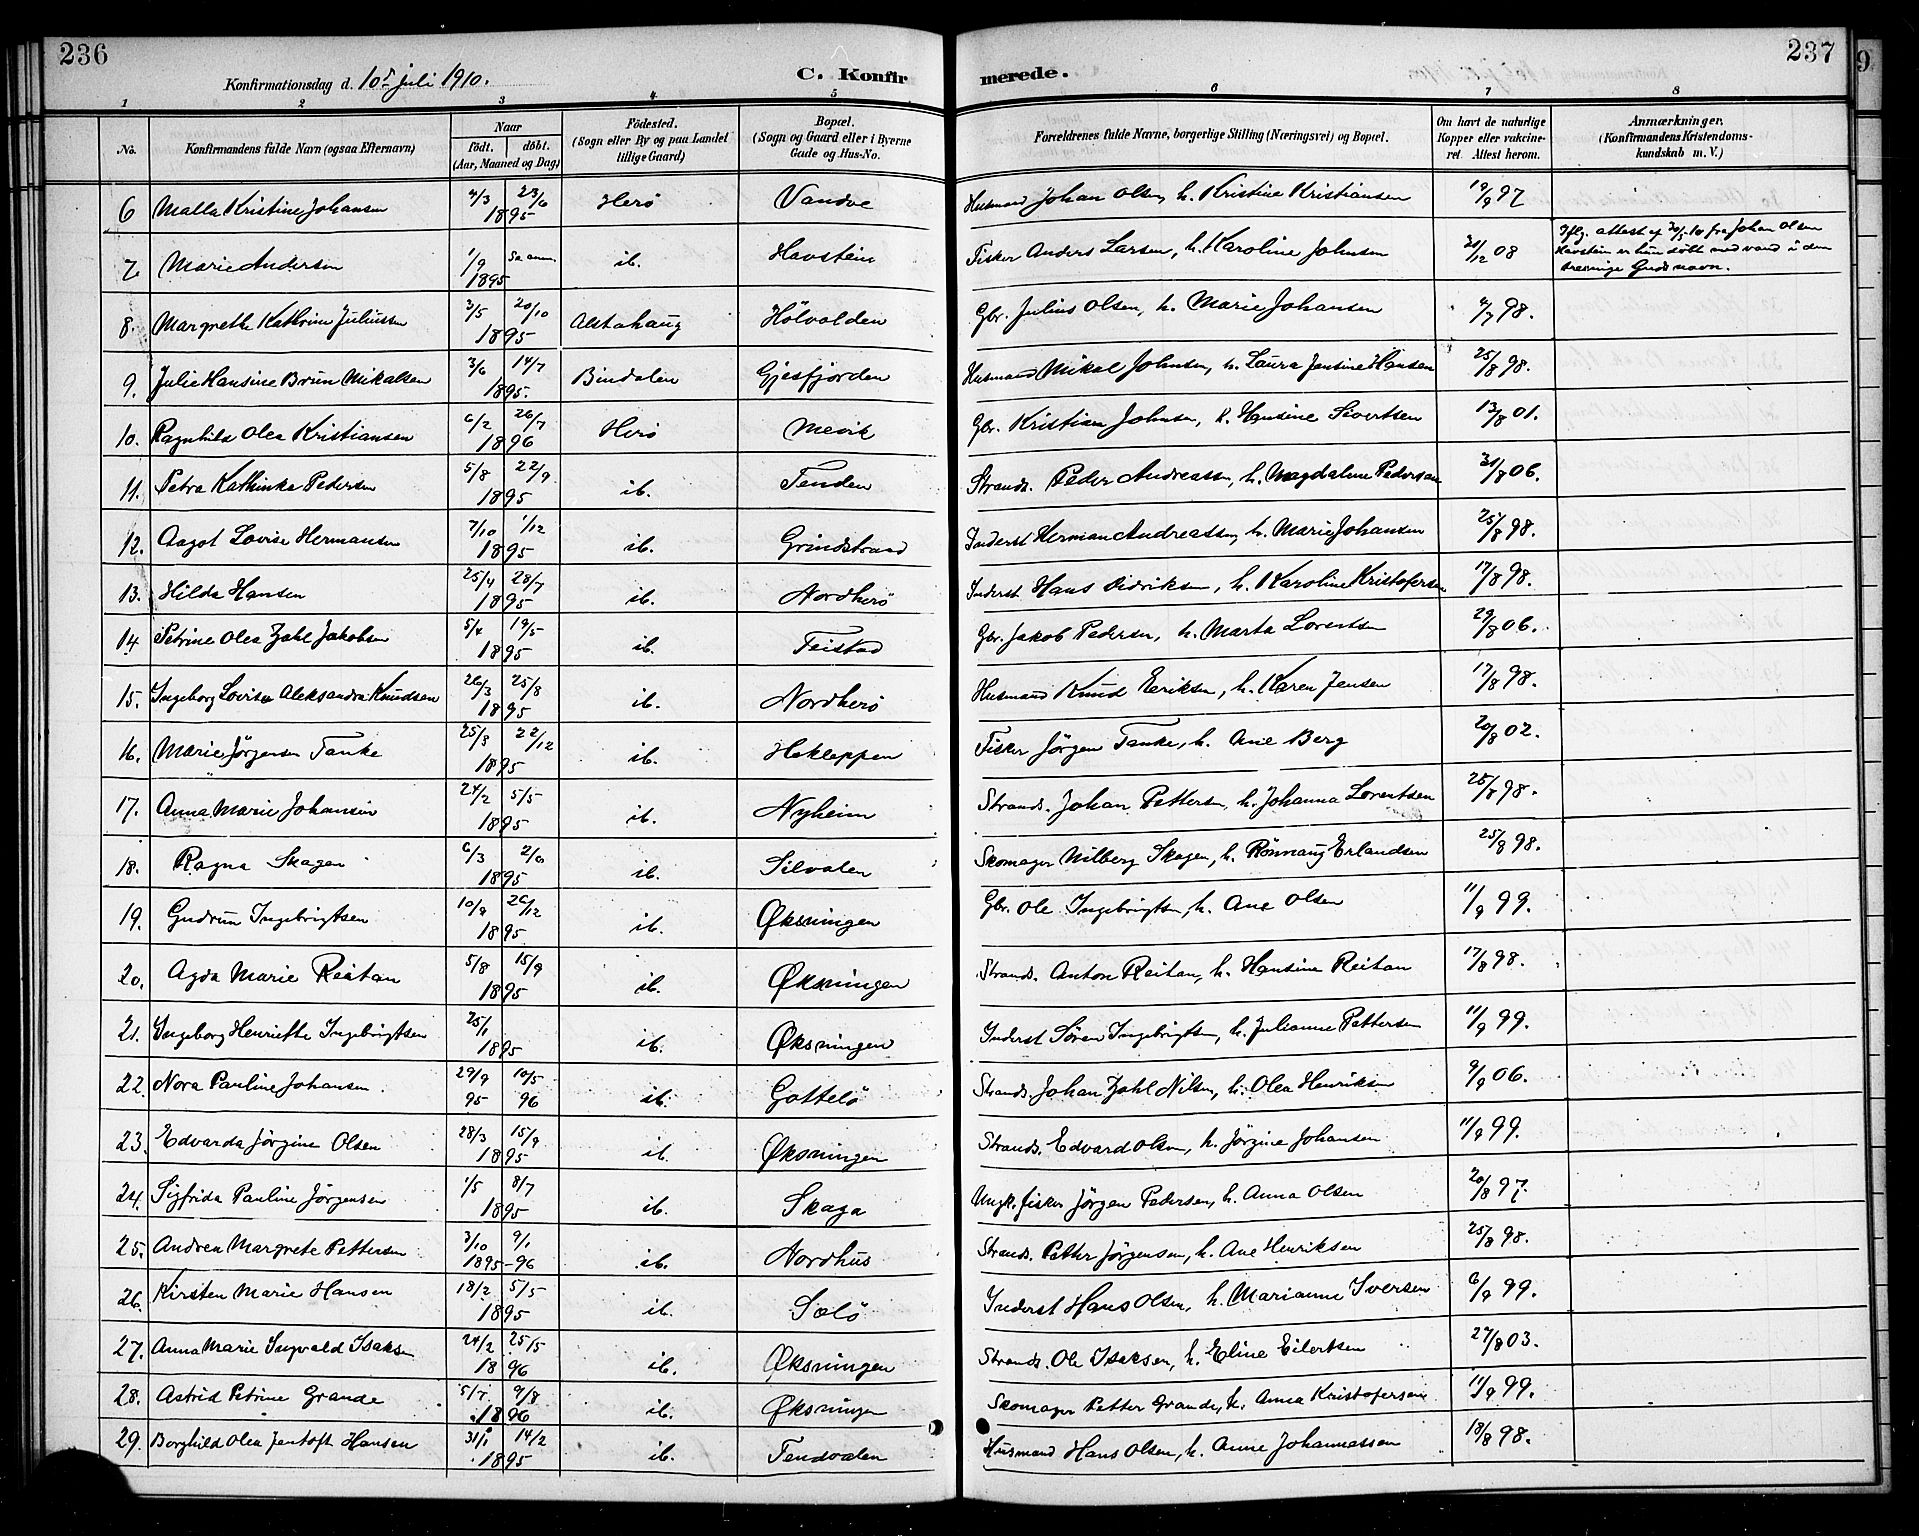 236
237
9
Konfirmationsdag d. 10de juli 1910.
C. Konfirmerede.
1 2 3 4 5 6 7 8
No. Konfirmandens fulde Navn (ogsaa Efternavn) Naar født. døbt. (Aar, Maaned og Dag) Fødested. (Sogn eller By og paa Landet tillige Gaard) Bopæl. (Sogn og Gaard eller i Byerne Gade og Hus-No. Forældrenes fulde Navne, borgerlige Stilling (Næringsvei) og Bopæl. Om havt de naturlige Kopper eller vakcineret Attest herom. Anmærkninger. (Konfirmandens Kristendomskundskab m. V.)
6 Malla Kristine Johansen 4/3 23/6 1895 Herö Vandve Husmand Johan Olsen, h. Kristine Kristiansen 19/9 97
7. Marie Andersen 1/9 Sa. ann. 1895 ib. Havstein Fisker Anders Larsen, h. Karoline Johnsen 30/12 08 Iflg. attest af 20/5 10 fra Johan Olsen Havstein er hun döbt med vand i den treenige Guds navn.
8. Margrethe Kathrine Juliussen 3/5 20/10 1895 Alstahaug Hölvolden Gbr. Julius Olsen, h. Marie Johansen 4/7 98.
9. Julie Hansine Brun Mikalsen 3/6 14/7 1895. Bindalen Gjesfjorden Husmand Mikal Johnsen, h. Laura Jensine Hansen 25/8 98.
10. Ragnhild Olea Kristiansen 6/2 26/7 1896 Herö Mevik Gbr. Kristian Johnsen, h. Hansine Sivertsen 13/8 01.
11. Petra Kathinka Pedersen 5/8 22/9 1895 ib. Tenden Strands. Peder Andreassen, h. Magdalene Pedersen 31/8 06.
12. Aagot Lovise Hermansen 7/10 1/12 1895 ib. Grindstrand Inderst Herman Andreassen, h. Marie Johansen 25/8 98.
13. Hilda Hansen 25/4 28/7 1895 ib. Nordherö Inderst Hans Didriksen, h. Karoline Kristofersen 17/8 98.
14 Petrine Olea Zahl Jakobsen 5/4 19/5 1895 ib. Teistad Gbr. Jakob Pedersen, h. Marta Lorentsen 29/8 06.
15. Ingeborg Lovise Aleksandra Knudsen 26/3 25/8 1895 ib. Nordherö Husmand Knud Eriksen, h. Karen Jensen 17/8 98.
16. Marie Jørgensen Tanke 25/8 22/12 1895 ib. Hekleppen Fisker Jörgen Tanke, h. Ane Berg 20/8 02.
17. Anna Marie Johansen 24/2 5/5 1895 ib. Nyheim Strands. Johan Pettersen, h. Johanna Lorentsen 25/8 98.
18. Ragna Skagen 6/3 2/6 1895 ib. Silvalen Skomager Milberg Skagen, h. Rönnaug Erlandsen 25/8 98.
19. Gudrun Ingebrigtsen 10/9 26/12 1895 ib. Øksningen Gbr. Ole Ingebrigtsen, h. Ane Olsen 11/9 99.
20. Agda Marie Reitan 5/8 15/9 1895 ib. Øksningen Strands. Anton Reitan, h. Hansine Reitan 17/8 98.
21. Ingeborg Henriette Ingebrigtsen 25/1 1895 ib. Øksningen Inderst Sören Ingebrigtsen, h. Julianne Pettersen 11/9 99.
22. Nora Pauline Johansen 29/9 95 10/5 96 ib. Gottelö Strands. Johan Zahl Nilsen, h. Olea Henriksen 9/9 06.
23. Edvarda Jörgine Olsen 28/3 15/9 1895 ib. Øksningen Strands. Edvard Olsen, h. Jörgine Johansen 11/9 99.
24. Sigfrida Pauline Jörgensen 1/5 8/7 1895 ib. Skaga Ungk. fisker Jörgen Pedersen, h. Anna Olsen 20/8 97.
25. Andrea Margrete Pettersen 3/10 9/1 1895-96 ib. Nordhus Strands. Petter Jörgensen, h. Ane Henriksen 25/8 98.
26. Kirsten Marie Hansen 18/2 5/5 1895 ib. Sölö Inderst Hans Olsen, h. Marianne Iversen 6/9 99.
27. Anna Marie Ingvald Isaksen 24/2 25/5 1896 ib. Øksningen Strands. Ole Isaksen, h. Eline Eilertsen 27/8 03.
28. Astrid Petrine Grande 5/7 9/8 1896 ib. Øksningen Skomager Petter Grande, h. Anna Kristofersen 11/9 99.
29. Borghild Olea Jentoft Hansen 31/1 14/2 1895 ib. Tendvalen Husmand Hans Olsen, h. Anne Johannessen 18/8 98.